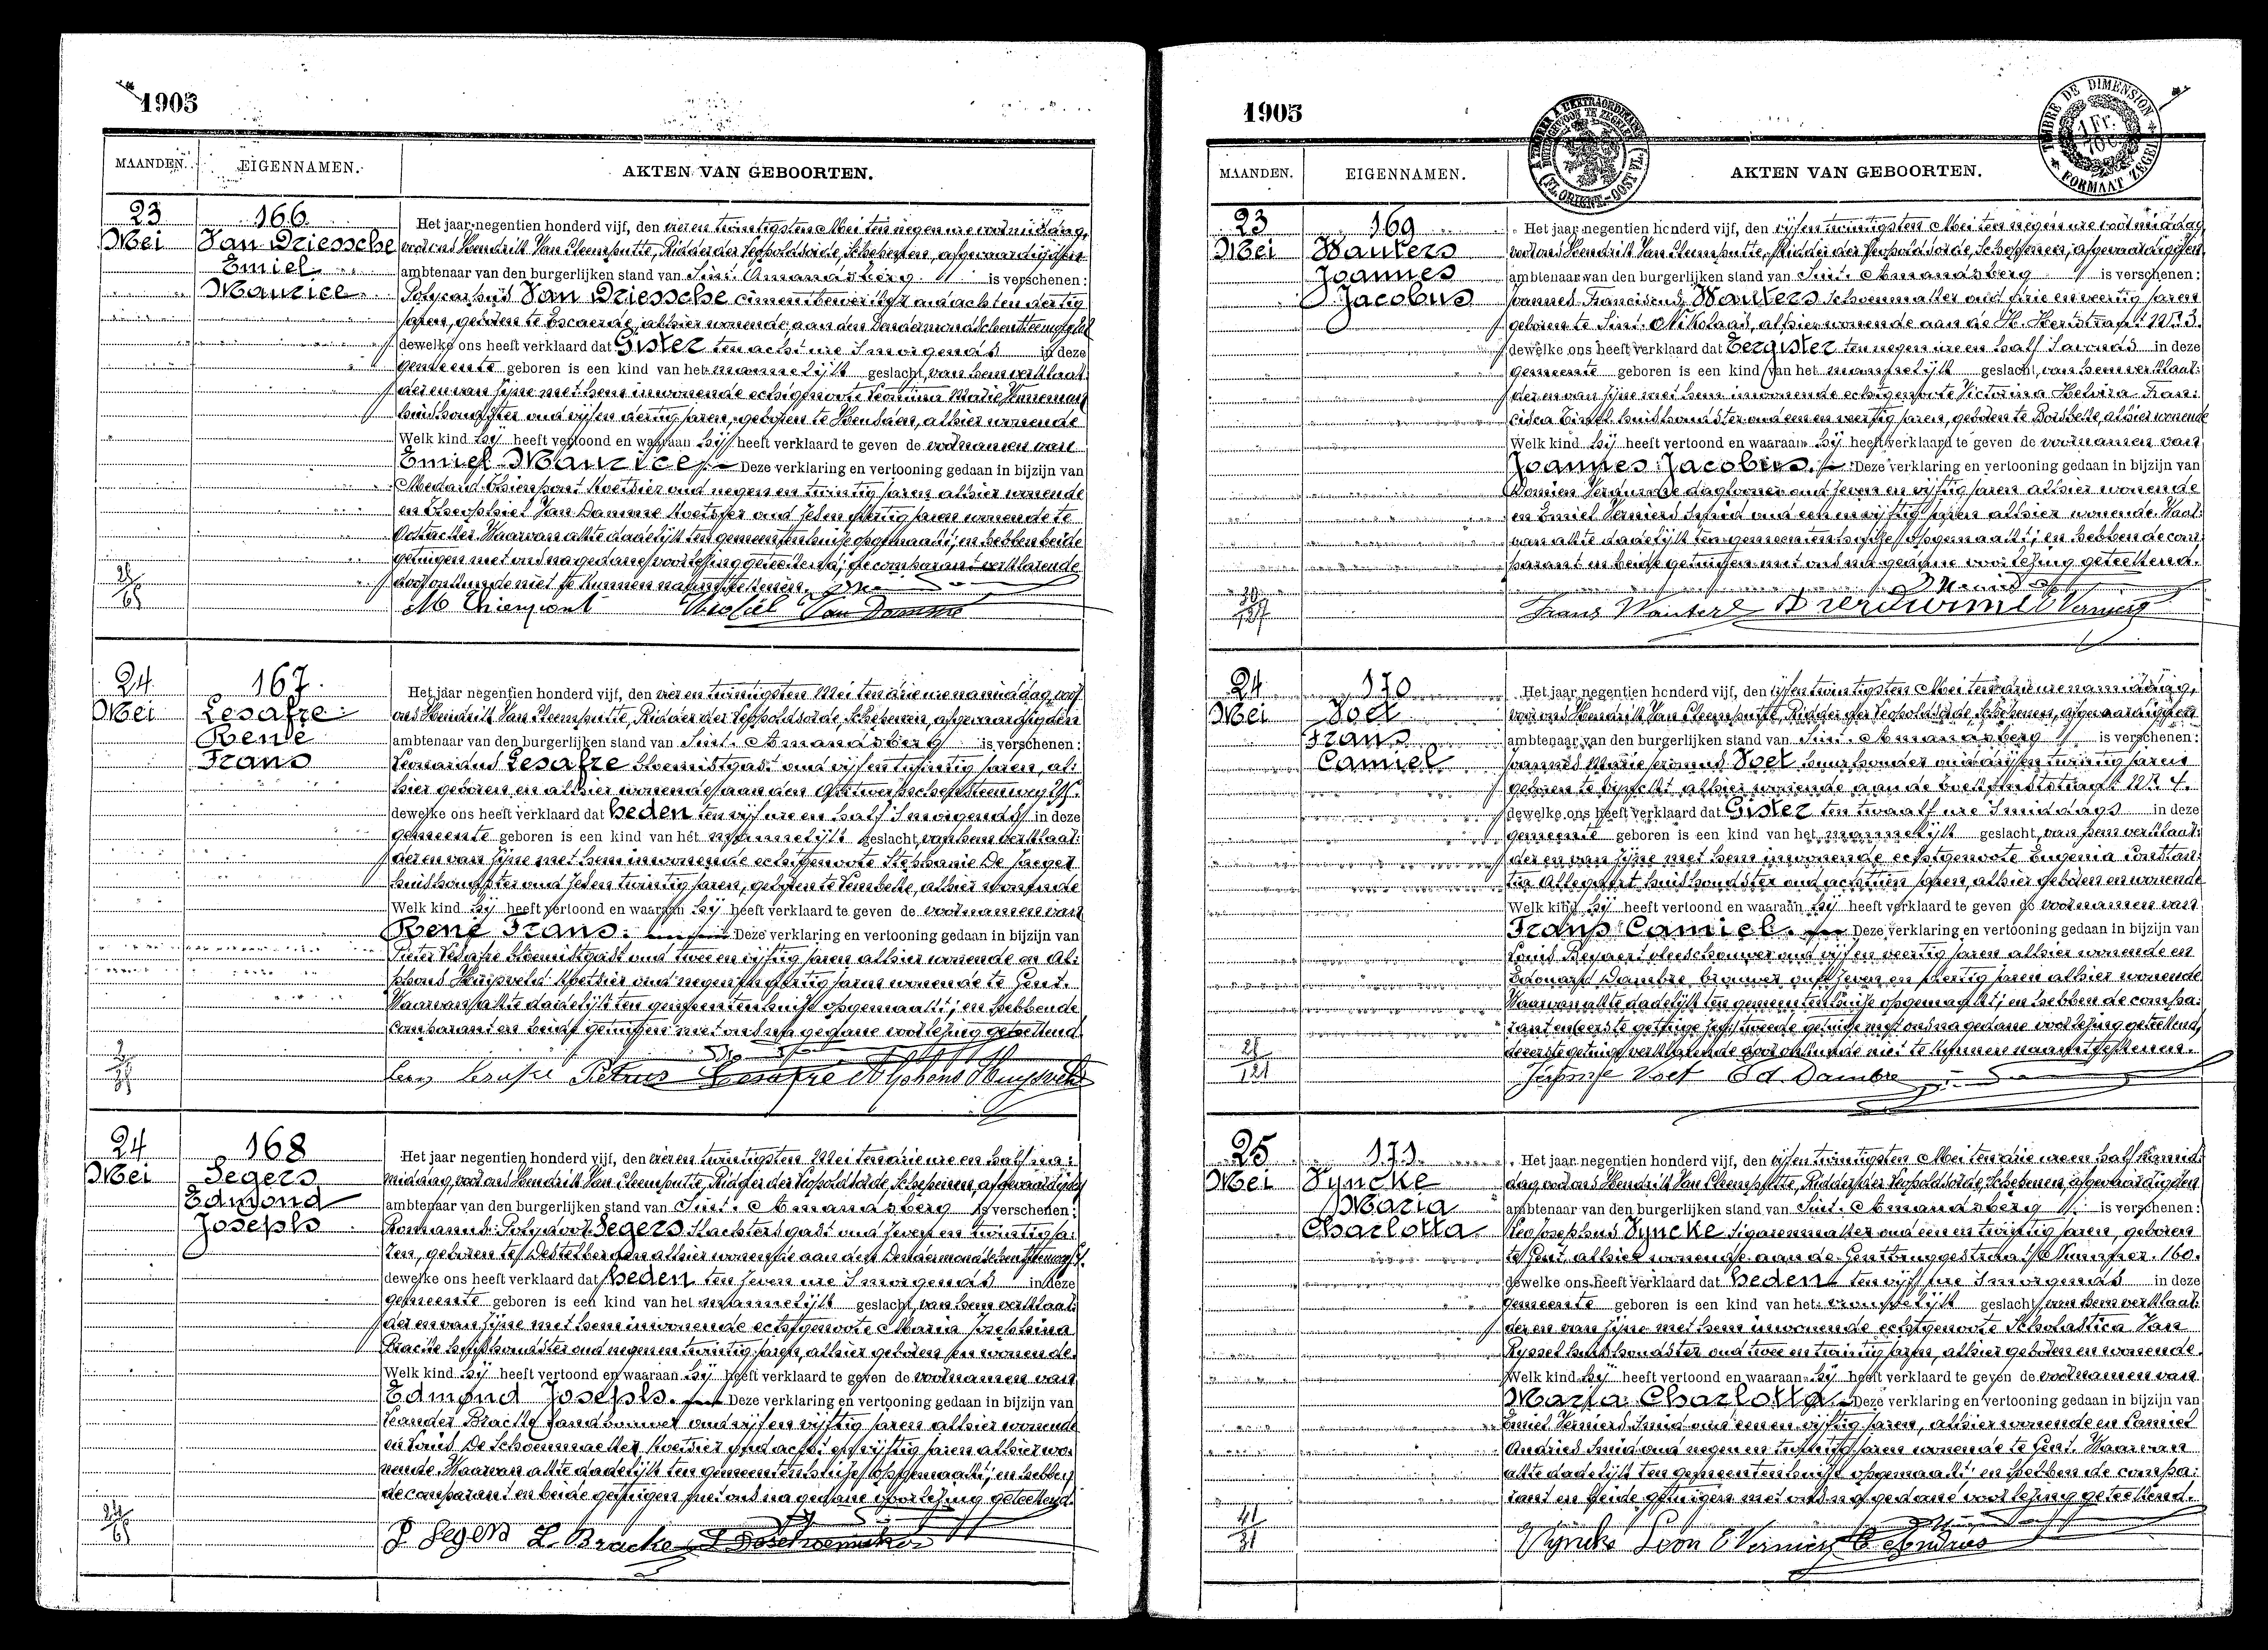 1905
MAANDEN. EIGENNAMEN. AKTEN VAN GEBOORTEN.
23 Mei
166
Van Driessche
Emiel
Maurice
Het jaar negentien honderd vijf, den vier en twintigsten Mei ten negen ure voormiddag,
voor ons Hendrik Van Cleemputte, Ridder der Leopoldsorde, Schepenen, afgevaardigden
ambtenaar van den burgerlijken stand van Sint Amandsberg is verschenen:
Polycarpus Van Driessche cimentbewerker oud acht en dertig
jaren, geboren te Escaerde, alhier wonende aan den Dendermondschen Steenweg
dewelke ons heeft verklaard dat Gister ten acht ure 's morgends in deze
gemeente geboren is een kind van het mannelijk geslacht, van hem verklaar-
der en van zijne met hem inwonende echtgenoote Leonina Marie
huishoudster oud vijf en dertig jaren, geboren te Heusden, alhier wonende
Welk kind hij heeft vertoond en waaraan hij heeft verklaard te geven de voornamen van
Emiel Maurice. Deze verklaring en vertooning gedaan in bijzijn van
Medard Thienpont koetsier oud negen en twintig jaren alhier wonende
en Theophiel Van Damme koetsier oud wonende te
Oostacker Waarvan akte dadelijk ten gemeentenhuize opgemaakt; en hebben beide
getuigen met ons na gedane voorlezing geteekend; de comparant verklarende
door onkunde niet te kunnen naamteekenen.
M Thienpont Theofiel Van Damme
28/65
24 Mei
167
Lesafre
René
Frans
Het jaar negentien honderd vijf, den vier en twintigsten Mei ten drie ure namiddag, voor
ons Hendrik Van Cleemputte, Ridder der Leopoldsorde, Schepenen, afgevaardigden
ambtenaar van den burgerlijken stand van Sint Amandsberg is verschenen:
Leonardus Lesafre bloemistgast oud vijf en twintig jaren, al-
hier geboren en alhier wonende aan den Antwerpschen Steenweg
dewelke ons heeft verklaard dat heden ten vijf ure en half 's morgends in deze
gemeente geboren is een kind van het mannelijk geslacht, van hem verklaar-
der en van zijne met hem inwonende echtgenoote Stephanie De Jaeger
huishoudster oud twintig jaren, geboren te Lembeke, alhier wonende
Welk kind hij heeft vertoond en waaraan hij heeft verklaard te geven de voornamen van
René Frans. Deze verklaring en vertooning gedaan in bijzijn van
Pieter Lesafre bloemistgast oud twee en vijftig jaren alhier wonende en Al-
phons Huysveld koetsier oud negen en jaren wonende te Gent.
Waarvan akte dadelijk ten gemeentenhuize opgemaakt; en hebben de
comparant en beide getuigen met ons na gedane voorlezing geteekend.
Petrus Lesafre Alphons Huysveld
24 Mei
168
Segers
Edmond
Joseph
Het jaar negentien honderd vijf, den vier en twintigsten Mei ten drie ure en half na-
middag, voor ons Hendrik Van Cleemputte, Ridder der Leopoldsorde, Schepenen, afgevaardigden
ambtenaar van den burgerlijken stand van Sint Amandsberg is verschenen:
Romanus Polydoor Segers slachtersgast oud zeven en twintig ja-
ren, geboren te Destelbergen alhier wonende aan den Dendermondschen Steenweg
dewelke ons heeft verklaard dat heden ten zeven ure 's morgends in deze
gemeente geboren is een kind van het mannelijk geslacht, van hem verklaar-
der en van zijne met hem inwonende echtgenoote Maria Josephina
Bracke huishoudster oud negen en twintig jaren, alhier geboren en wonende.
Welk kind hij heeft vertoond en waaraan hij heeft verklaard te geven de voornamen van
Edmond Joseph. Deze verklaring en vertooning gedaan in bijzijn van
Leander Bracke landbouwer oud vijf en vijftig jaren alhier wonende
en Louis De Schoenmaeker koetsier oud acht en vijftig jaren alhier wo-
nende. Waarvan akte dadelijk ten gemeentenhuize opgemaakt; en hebben
de comparant en beide getuigen met ons na gedane voorlezing geteekend.
P Segers L. Bracke L Deschoenmaker
24/65
1905
MAANDEN. EIGENNAMEN. AKTEN VAN GEBOORTEN.
TIMBRE DE DIMENSION
1 Fr.
FORMAAT ZEGEL
23 Mei
169
Wauters
Joannes
Jacobus
Het jaar negentien honderd vijf, den vijf en twintigsten Mei ten negen ure voormiddag
voor ons Hendrik Van Cleemputte, Ridder der Leopoldsorde, Schepenen, afgevaardigden
ambtenaar van den burgerlijken stand van Sint Amandsberg is verschenen:
Joannes Franciscus Wauters schoenmaker oud drie en veertig jaren
geboren te Sint Nikolaas, alhier wonende aan de H. Hertstraat Nr. 3.
dewelke ons heeft verklaard dat Eergister ten negen ure en half 's avonds in deze
gemeente geboren is een kind van het mannelijk geslacht, van hem verklaar-
der en van zijne met hem inwonende echtgenoote Victorina Helvira Fran-
cisca huishoudster oud een en veertig jaren, geboren te Borsbeke, alhier wonende
Welk kind hij heeft vertoond en waaraan hij heeft verklaard te geven de voornamen van
Joannes Jacobus. Deze verklaring en vertooning gedaan in bijzijn van
Domien daglooner oud zeven en vijftig jaren alhier wonende
en Emiel Verniers smid oud een en vijftig jaren alhier wonende. Waar-
van akte dadelijk ten gemeentenhuize opgemaakt; en hebben de com-
parant en beide getuigen met ons na gedane voorlezing geteekend.
Frans Wauters E Verniers
24 Mei
170
Voet
Frans
Camiel
Het jaar negentien honderd vijf, den vijf en twintigsten Mei ten drie ure namiddag,
voor ons Hendrik Van Cleemputte, Ridder der Leopoldsorde, Schepenen, afgevaardigden
ambtenaar van den burgerlijken stand van Sint Amandsberg is verschenen:
Joannes Marie Voet huurhouder oud vijf en twintig jaren
geboren te alhier wonende aan de Nr. 4.
dewelke ons heeft verklaard dat Gister ten twaalf ure 's middags in deze
gemeente geboren is een kind van het mannelijk geslacht, van hem verklaar-
der en van zijne met hem inwonende echtgenoote Eugenia Constan-
tia Allegaert huishoudster oud achttien jaren, alhier geboren en wonende
Welk kind hij heeft vertoond en waaraan hij heeft verklaard te geven de voornamen van
Frans Camiel. Deze verklaring en vertooning gedaan in bijzijn van
Louis Beyaert vleeschouwer oud vijf en veertig jaren alhier wonende en
Edouard Dambre brouwer oud zeven en jaren alhier wonende
Waarvan akte dadelijk ten gemeentenhuize opgemaakt; en hebben de compa-
rant en tweede getuige met ons na gedane voorlezing geteekend,
de eerste getuige verklarende door onkunde niet te kunnen naamteekenen.
Voet Ed Dambre
28/121
25 Mei
171
Vyncke
Maria
Charlotta
Het jaar negentien honderd vijf, den vijf en twintigsten Mei ten drie ure en half namid-
dag voor ons Hendrik Van Cleemputte, Ridder der Leopoldsorde, Schepenen, afgevaardigden
ambtenaar van den burgerlijken stand van Sint Amandsberg is verschenen:
Leo Josephus Vyncke sigarenmaker oud een en twintig jaren, geboren
te Gent, alhier wonende aan de Gentbruggestraat Nummer 160.
dewelke ons heeft verklaard dat heden ten vijf ure 's morgends in deze
gemeente geboren is een kind van het vrouwelijk geslacht, van hem verklaar-
der en van zijne met hem inwonende echtgenoote Scholastica Van
Ryssel huishoudster oud twee en twintig jaren, alhier geboren en wonende.
Welk kind hij heeft vertoond en waaraan hij heeft verklaard te geven de voornamen van
Maria Charlotta. Deze verklaring en vertooning gedaan in bijzijn van
Emiel Verniers smid oud een en vijftig jaren, alhier wonende en Camiel
Andries smid oud negen en twintig jaren wonende te Gent. Waarvan
akte dadelijk ten gemeentenhuize opgemaakt en hebben de compa-
rant en beide getuigen met ons na gedane voorlezing geteekend.
Vyncke Leon E Verniers C Andries
41/31